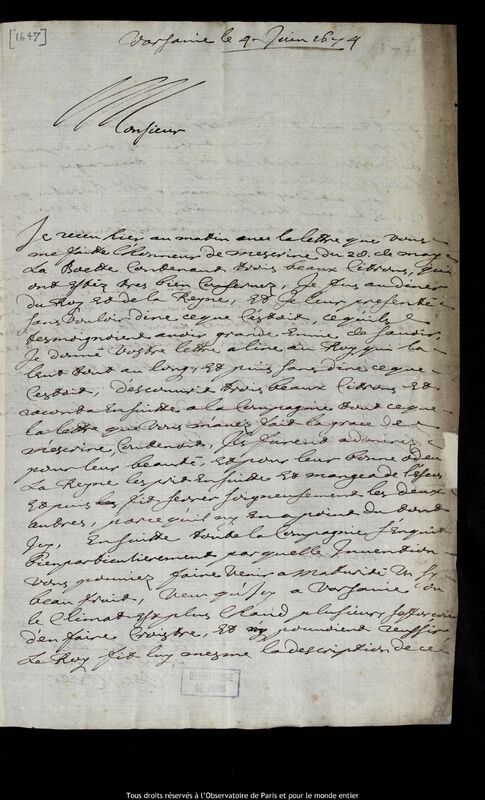 [1647]
Varsauie le 4 Juin 1674
Monsieur
Je receu hier au matin auec la lettre que vous
me faite l'honneur de mescrire du 28. de may
La Boette Contenant trois beaux Citrons, qui
ont estez tres bien Conseruez, je fus au diner
du Roy et de la Reyne, Et je leur presente
sans vouloir dire ce que C'estoit, ce qu'ils
tesmoignoient auoir grande Enuie de sauoir,
Je donné vostre lettre a lire au Roy qui la
leut tout au long, Et puis sans dire ce que
C'estoit, descouurit trois beaux Citrons Et
raconta Ensuitte a la Compagnie tout ce que
la lettre que vous m'auez fait la grace de
m'escrire, Contenoit, Ils furent admirez
pour leur beauté, Et pour leur bonne odeur
La Reyne les prit Ensuitte Et mangea de
Et puis les fit serrer soigneusement les deux
autres, parce qu'il ny En a point du tout
Jcy, Ensuitte toute la Compagnie s'Enquit
bien particulierement par quelle Jnuention
vous pouuiez faire venir a maturité Un sy
beau fruit, veu qu'Jcy a Varsauie ou
le Climat est plus Chaud plusieurs
d'en faire Croistre, Et ny pouuoient reussir
Le Roy fit luy mesme la description de ce
OBSERVATOIRE
DE PARIS
Tous droits réservés à l'Observatoire de Paris et pour le monde entier